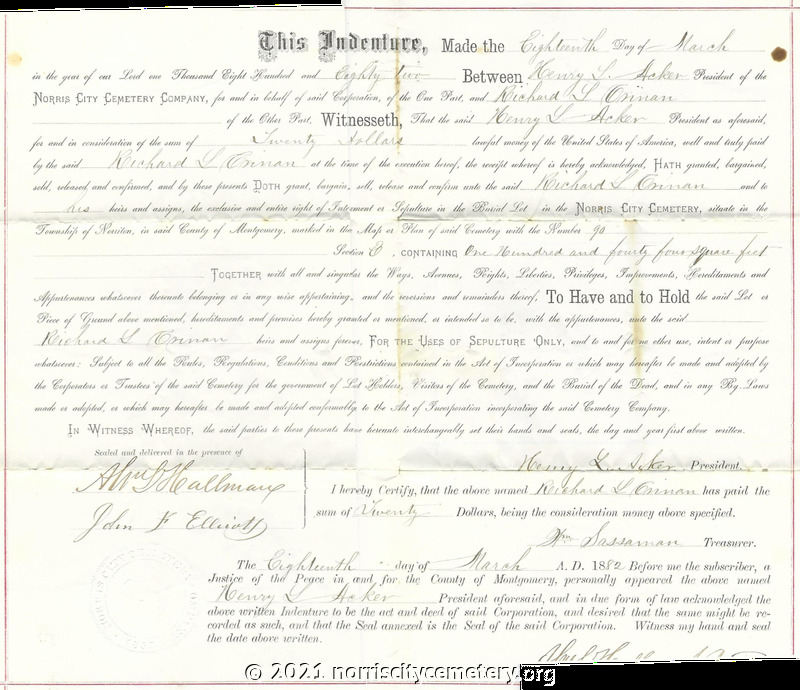 This Indenture, Made the Eighteenth Day of March
in the year of our Lord one Thousand Eight Hundred and Eighty two Between Henry L. Acker President of the
NORRIS CITY CEMETERY COMPANY, for and in behalf of said Corporation, of the One Part, and Richard L Orinan
of the Other Part, Witnesseth, That the said Henry L Acker President as aforesaid,
for and in consideration of the sum of Twenty Dollars lawful money of the United States of America, well and truly paid
by the said Richard L Orinan at the time of the execution hereof, the receipt whereof is hereby acknowledged, HATH granted, bargained,
sold, released and confirmed, and by these presents DOTH grant, bargain, sell, release and confirm unto the said Richard L Orinan and to
his heirs and assigns, the exclusive and entire right of Interment or Sepulture in the Burial Lot in the NORRIS CITY CEMETERY, situate in the
Township of Norriton, in said County of Montgomery, marked in the Map or Plan of said Cemetery with the Number 90
Section B, CONTAINING One Hundred and fourty four square feet
TOGETHER with all and singular the Ways, Avenues, Rights, Liberties, Privileges, Improvements, Hereditaments and
Appurtenances whatsoever thereunto belonging or in any wise appertaining, and the reversions and remainders thereof, To Have and to Hold the said Lot or
Piece of Ground above mentioned, hereditaments and premises hereby granted or mentioned, or intended so to be, with the appurtenances, unto the said
Richard L Orinan heirs and assigns forever, FOR THE USES OF SEPULTURE ONLY, and to and for no other use, intent or purpose
whatsoever: Subject to all the Rules, Regulations, Conditions and Restrictions contained in the Act of Incorporation or which may hereafter be made and adopted by
the Corporators or Trustees of the said Cemetery for the government of Lot Holders, Visitors of the Cemetery, and the Burial of the Dead, and in any By-Laws
made or adopted, or which may hereafter be made and adopted conformably to the Act of Incorporation incorporating the said Cemetery Company.
IN WITNESS WHEREOF, the said parties to these presents have hereunto interchangeably set their hands and seals, the day and year first above written.
Sealed and delivered in the presence of
Henry L. Acker President.
Hallman
John F Elliott
I hereby Certify, that the above named Richard L Orinan has paid the
sum of Twenty Dollars, being the consideration money above specified.
Wm Sassaman Treasurer.
The Eighteenth day of March A. D. 1882 Before me the subscriber, a
Justice of the Peace in and for the County of Montgomery, personally appeared the above named
Henry L Acker President aforesaid, and in due form of law acknowledged the
above written Indenture to be the act and deed of said Corporation, and desired that the same might be re-
corded as such, and that the Seal annexed is the Seal of the said Corporation. Witness my hand and seal
the date above written.
© 2021 norriscitycemetery.org